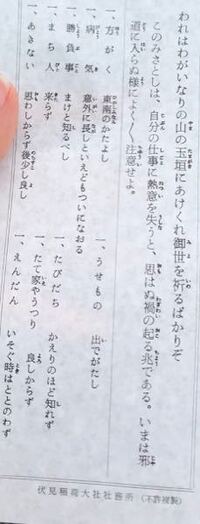 われはわがいなりの山の玉垣にあけくれ御世を祈るばかりぞ
このみさとしは、自分の仕事に熱意を失うと、思はぬ禍の起る兆である。いまは邪
道に入らぬ様によく〱注意せよ。
一、方がく 東南のかたよし
一、病気 意外に長しといえどもついになおる
一、勝負事 まけと知るべし
一、まち人 来らず
一、あきない 思わしからず後少し良し
一、うせもの 出でがたし
一、たびだち かえりのほど知れず
一、たて家やうつり 良しからず
一、えんだん いそぐ時はととのわず
伏見稲荷大社社務所 (不許複製)